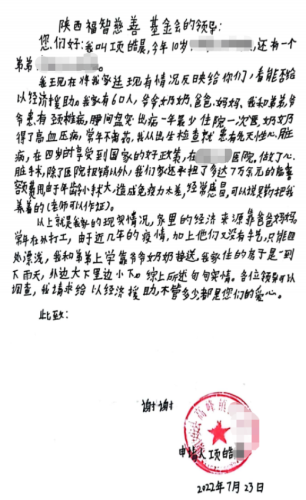 陕西福智慈善基金会的领导:
您们好:我叫项皓晨,今年10岁,还有一个
弟弟
我现在将我家庭现有情况反映给你们,看能否给
以经济援助。我家有6口人,爷爷奶奶、爸爸、妈妈、我和弟弟。爷
爷患有颈椎病,腰间盘突出病一年最少住院一次,奶奶
得了高血压病,常年不离药,我从出生检查就患有先天性心脏
病,在四岁时享受到国家的好政策,在医院,做了心
脏手术,除了医院报销以外,我们家还承担了多达7万余元的
费用由于年龄小,造成免疫力差,经常感冒,可以说是药把我
养着的(老师可以作证)。
以上就是我家的现实情况,家里的经济来源靠爸爸妈妈
常年在外打工,由于近几年的疫情,加上他们又没有手艺,只能四
处漂流,我和弟弟上学靠爷爷奶奶接送。我家住的房子是一到
下雨天,外边大下里边小下。综上所述句句实情。各位领导可以
调查,我请求给以经济援助,不管多少都是您们的爱心。
此致:
谢谢
申请人项皓
2022年7月23日